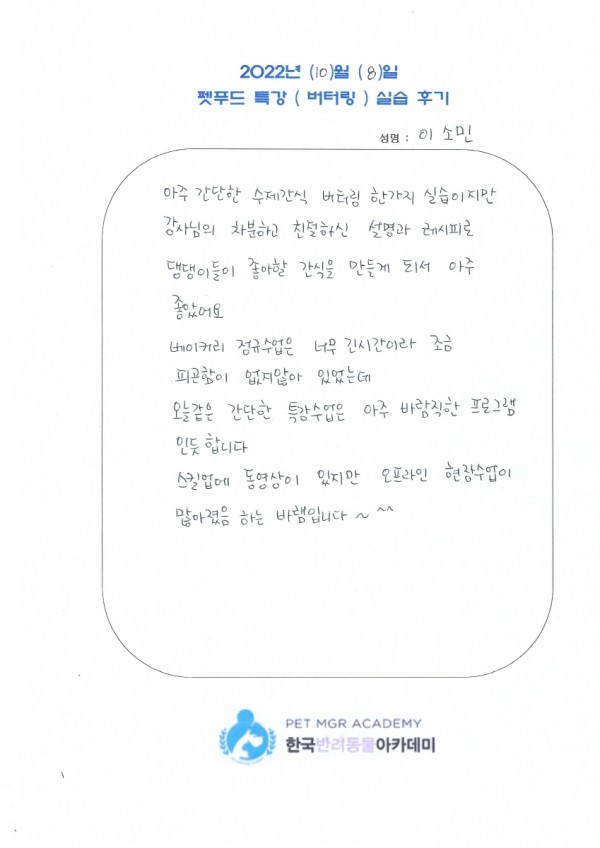 2022년 (10)월 (8)일
펫푸드 특강 ( 버터링 ) 실습 후기
성명 : 이 소민
아주 간단한 수제간식 버터링 한가지 실습이지만
강사님의 차분하고 친절하신 설명과 레시피로
댕댕이들이 좋아할 간식을 만들게 되서 아주
좋았어요
베이커리 정규수업은 너무 긴시간이라 조금
피곤함이 없지않아 있었는데
오늘같은 간단한 특강수업은 아주 바람직한 프로그램
인듯 합니다
스킬업에 동영상이 있지만 오프라인 현장수업이
많아졌음 하는 바램입니다 ~ ^^
PET MGR ACADEMY
한국반려동물아카데미